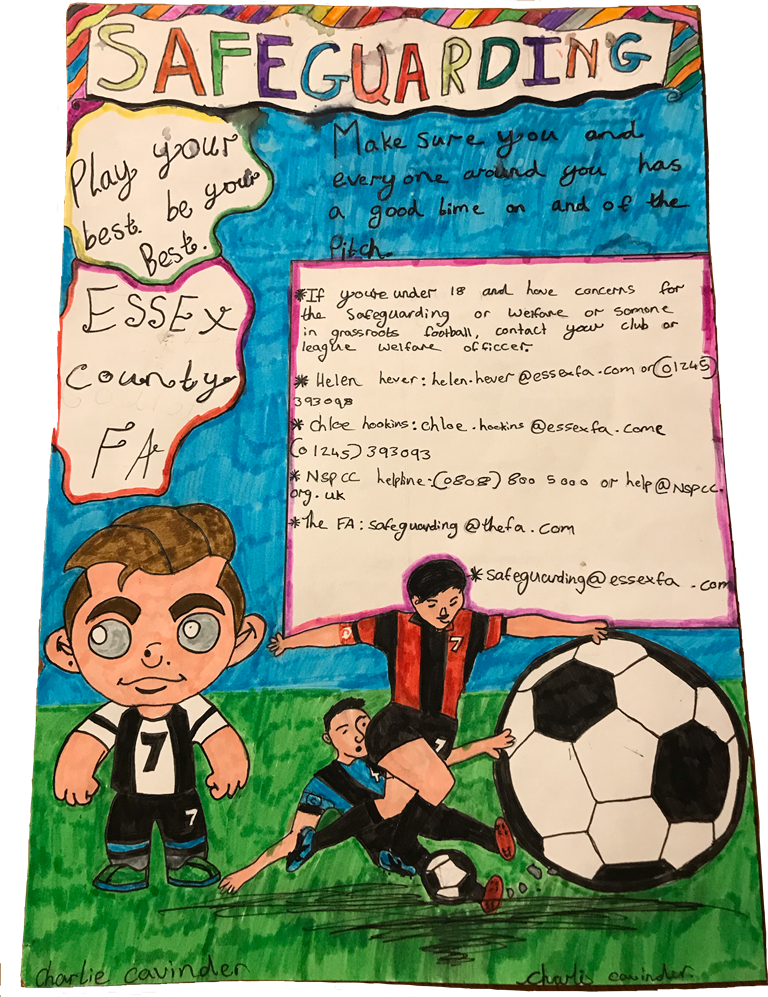 SAFEGUARDING
Play your
best be your
Best.
Make sure you and
everyone around you has
a good time on and of the
Pitch.
ESSEX
County
FA
*If you're under 18 and have concerns for
the Safeguarding or welfare or somone
in grassroots football, contact your club or
league welfare officcer.
* Helen hever: helen.hever@essexfa.com or (01245)
393098
* Chloe hookins: chloe.hookins @essexfa.come
(01245) 393093
* NSPCC helpline-(0808) 800 5000 or help@NSPCC.
org.uk
*The FA: safeguarding @thefa.com
*safeguarding@essexfa.com
7
7
7
7
charlie cavinder
charlie cavinder